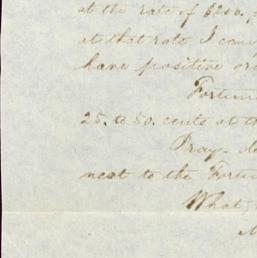 at the rate of $200.
at that rate I can
have positive or
Fortun
25. to 50. cents at th
Pray. d
next to the Fortu
What,